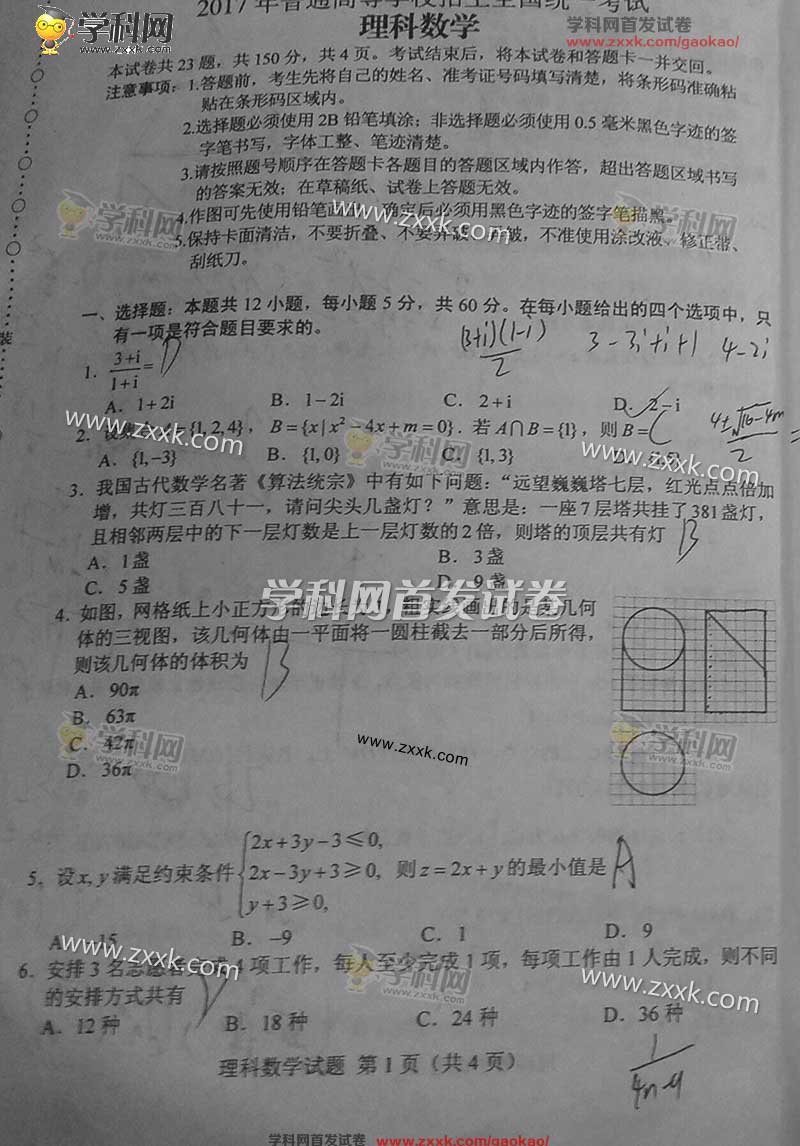 2017年普通高等学校招生全国统一考试
学科网首发试卷
www.zxxk.com/gaokao/
理科数学
学科网
www.zxxk.com
本试卷共 23 题，共 150 分，共 4 页。考试结束后，将本试卷和答题卡一并交回。
注意事项：1.答题前，考生先将自己的姓名、准考证号码填写清楚，将条形码准确粘
贴在条形码区域内。
2.选择题必须使用 2B 铅笔填涂；非选择题必须使用 0.5 毫米黑色字迹的签
字笔书写，字体工整、笔迹清楚。
3.请按照题号顺序在答题卡各题目的答题区域内作答，超出答题区域书写
的答案无效；在草稿纸、试卷上答题无效。
4.作图可先使用铅笔画出，确定后必须用黑色字迹的签字笔描黑。
5.保持卡面清洁，不要折叠、不要弄破、弄皱，不准使用涂改液、修正带、
刮纸刀。
学科网
学科网
www.zxxk.com
www.zxxk.com
装
一、选择题：本题共 12 小题，每小题 5 分，共 60 分。在每小题给出的四个选项中，只
有一项是符合题目要求的。
(3+i)(1-i)/2 3-3i+i+1 4-2i
1. (3+i)/(1+i)= D
A. 1+2i B. 1-2i C. 2+i D. 2-i
2. 设集合A={1,2,4}，B={x|x²-4x+m=0}. 若A∩B={1}，则B= C
4±√16-4m/2 =
A. {1,-3} B. {1,0} C. {1,3} D. {1,5}
www.zxxk.com
www.zxxk.com
3. 我国古代数学名著《算法统宗》中有如下问题：“远望巍巍塔七层，红光点点倍加
增，共灯三百八十一，请问尖头几盏灯？”意思是：一座 7 层塔共挂了 381 盏灯，
且相邻两层中的下一层灯数是上一层灯数的 2 倍，则塔的顶层共有灯 B
A. 1 盏 B. 3 盏
C. 5 盏 D. 9 盏
学科网首发试卷
4. 如图，网格纸上小正方形的边长为1，粗实线画出的是某几何
体的三视图，该几何体由一平面将一圆柱截去一部分后所得，
则该几何体的体积为 B
A. 90π
B. 63π
C. 42π
D. 36π
学科网
www.zxxk.com
学科网
5. 设x,y满足约束条件{2x+3y-3≤0, 2x-3y+3≥0, y+3≥0, 则z=2x+y的最小值是 A
A. -15 B. -9 C. 1 D. 9
www.zxxk.com
学科网
www.zxxk.com
6. 安排 3 名志愿者完成 4 项工作，每人至少完成 1 项，每项工作由 1 人完成，则不同
的安排方式共有 D
A. 12 种 B. 18 种 C. 24 种 D. 36 种
理科数学试题 第 1 页（共 4 页）
学科网首发试卷
www.zxxk.com/gaokao/